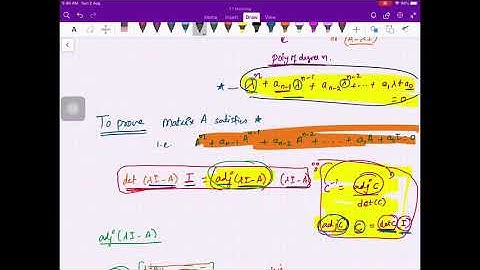 Home Insert Draw View
c
poly of degree n.
* — λⁿ + aₙ₋₁ λⁿ⁻¹ + aₙ₋₂ λⁿ⁻² + ... + a₁λ + a₀ = 0
To prove Matrix A satisfies *
i.e. Aⁿ + aₙ₋₁ Aⁿ⁻¹ + aₙ₋₂ Aⁿ⁻² + ... + a₁A + a₀I = 0
det (λI-A) I = adj (λI-A) (λI-A)
C⁻¹ = adj C / det(C)
adj C C = det C I
adj (λI-A)